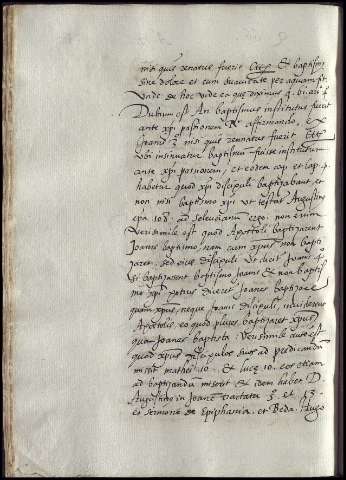 nisi quis renatus fuerit et baptism
sine dolore et cum suavitate per aquam
Unde de hoc vide ea que diximus q. bi ari
Dubium est An baptismus institutus fuerit
ante xpi passionem affirmando, ex
Joannis 3 nisi quis rennatus fuerit
Ubi insinuatur baptismu fuisse institutum
ante xpi passionem, et eodem cap. et cap. 4
habetur quod xpi discipuli baptizabant et
non nisi baptismo xpi ut testat Augustinus
epla 108. ad seleucianum non enim
verisimile est quod Apostoli baptizarent
Joanis baptismo, nam cum xpus non bapti
zaret, sed eius discipuli ut dicit Joanis 4
si baptizarent baptismo Joanis et non baptis
mo xpi, potius diceret Joanes baptizare
quam xpus, neque Joanis discipuli, inviderent
Apostolis eo quod plures baptizaret xpus
quam Joanes baptista. Verisimile autem est
quod xpus discipulos suos ad predicandum
misit mathei 10. et lucę 10. eos etiam
ad baptizandu miserit et idem habet D.
Augustino in Joanē tractatu 5. et 13.
et sermone de Epiphania. et Beda. Augo